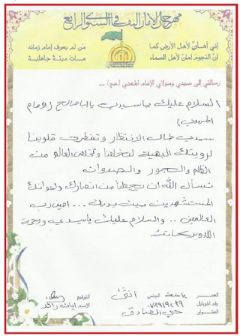 مهرجان الأمان الثقافي السنوي الرابع
إني أمان لأهل الأرض كما
ان النجوم امان لأهل السماء
من لم يعرف إمام زمانه
مات ميتة جاهلية
رسالتي إلى سيدي ومولاي الإمام المهدي (عج) ...
السلام عليك يا سيدي يا اباصالح (الامام
المهدي)
سيدي طال الانتظار وتفطرت قلوبنا
لرؤيتك البهية لتخلصنا وتخلص العالم من
الظلم والجور
نسأل الله ان يجعلنا من انصارك واعوانك
المستشهدين بين يديك ... امين رب
العالمين .. والسلام عليك يا سيدي ورحمة
الله وبركاته
الجنس
انثى
التوقيع
العنوان
حي
الاسم